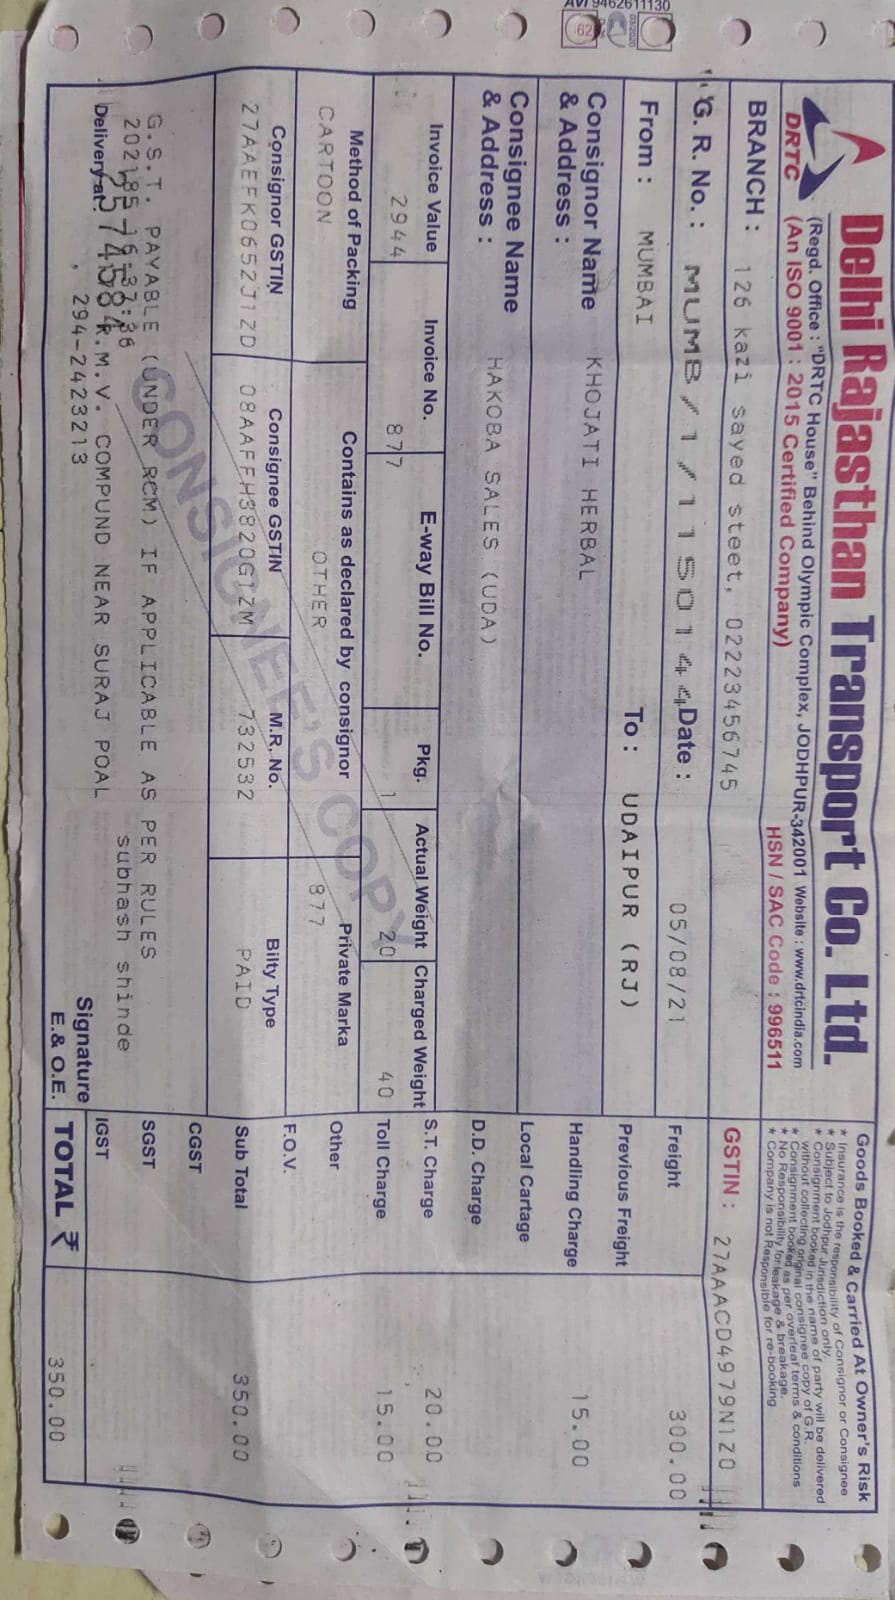 AVI 9462611130
62
03/2020
Delhi Rajasthan Transport Co. Ltd.
DRTC
(Regd. Office : "DRTC House" Behind Olympic Complex, JODHPUR-342001 Website : www.drtcindia.com
(An ISO 9001: 2015 Certified Company)
HSN / SAC Code : 996511
Goods Booked & Carried At Owner's Risk
★ Insurance is the responsibility of Consignor or Consignee
★ Subject to Jodhpur Jurisdiction only.
★ Consignment booked in the name of party will be delivered
without collecting original consignee copy of G.R.
★ Consignment booked as per overleaf terms & conditions
★ No Responsibility for leakage & breakage.
★ Company is not Responsible for re-booking
BRANCH : 126 kazi sayed steet, 02223456745
GSTIN : 27AAACD4979N1Z0
G. R. No. : MUMB/1/1150144 Date : 05/08/21
Freight 300.00
From : MUMBAI To : UDAIPUR (RJ)
Previous Freight
Consignor Name & Address : KHOJATI HERBAL
Handling Charge 15.00
Local Cartage
Consignee Name & Address : HAKOBA SALES (UDA)
D.D. Charge
Invoice Value Invoice No. E-way Bill No. Pkg. Actual Weight Charged Weight
2944 877 1 20 40
S.T. Charge 20.00
Toll Charge 15.00
Method of Packing Contains as declared by consignor Private Marka
CARTOON OTHER 877
Other
F.O.V.
Consignor GSTIN Consignee GSTIN M.R. No. Bilty Type
27AAEFK0652J1ZD 08AAFFH3820G1ZM 732532 PAID
Sub Total 350.00
CONSIGNEE'S COPY
CGST
G.S.T. PAYABLE (UNDER RCM) IF APPLICABLE AS PER RULES
SGST
202185 16:37:36 subhash shinde
2574084
Delivery at: R.M.V. COMPUND NEAR SURAJ POAL
, 294-2423213
Signature
IGST
E.& O.E.
TOTAL ₹ 350.00